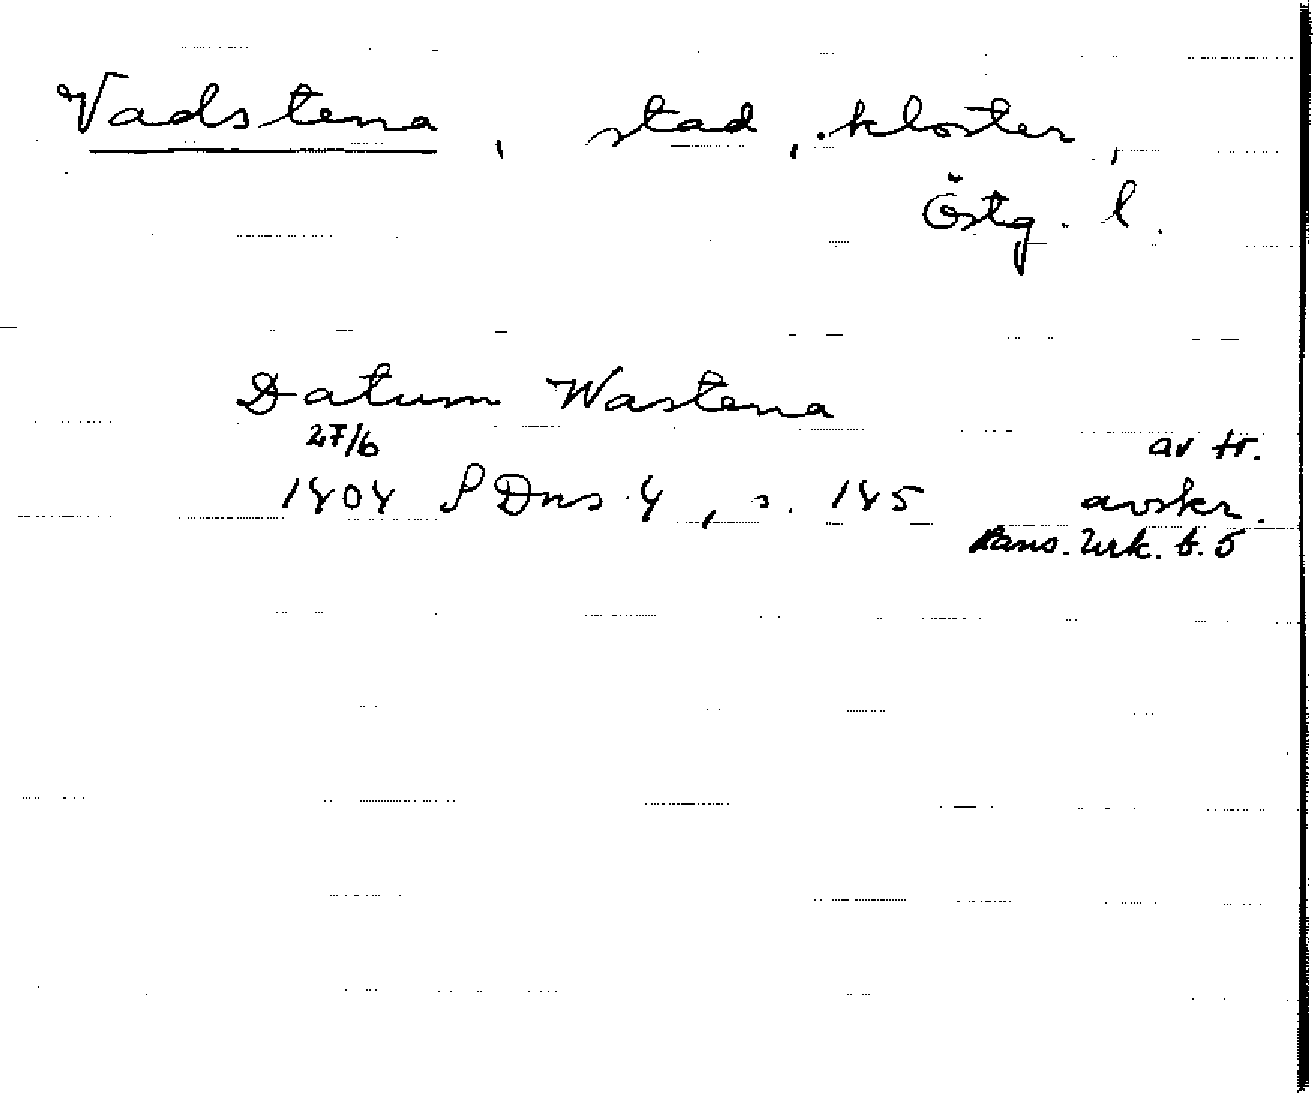 Vadstena, stad, kloster,
Östg. l.
Datum Wastena
27/6
av tr.
1404 SDns 4, s. 145 avskr.
Hans. Urk. b. 5